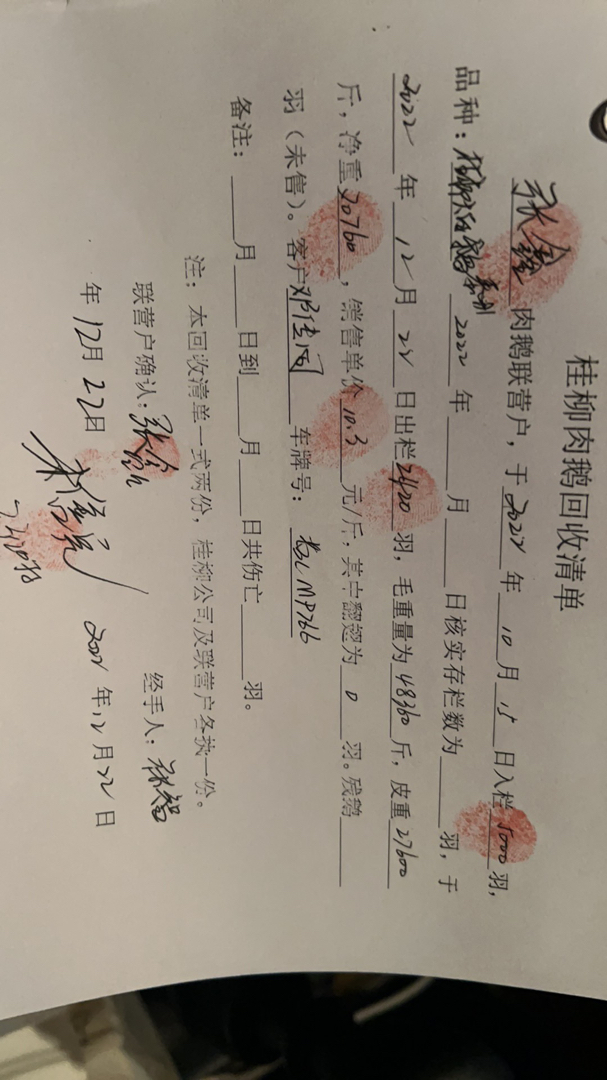 桂柳肉鹅回收清单
张鑫 肉鹅联营户，于 2022 年 10 月 15 日入栏 5000 羽，
品种： 2022 年 月 日核实存栏数为 羽，于
2022 年 12 月 22 日出栏 2420 羽，毛重量为 48360 斤，皮重 27600
斤，净重 20760 ，销售单价 10.3 元/斤，其中翻翅为 0 羽。残鹅
羽（未售）。客户 车牌号：
备注： 月 日到 月 日共伤亡 羽。
注：本回收清单一式两份，桂柳公司及联营户各执一份。
联营户确认：张鑫 经手人：
年 12月 22日 2022 年 12 月 22 日
2420羽